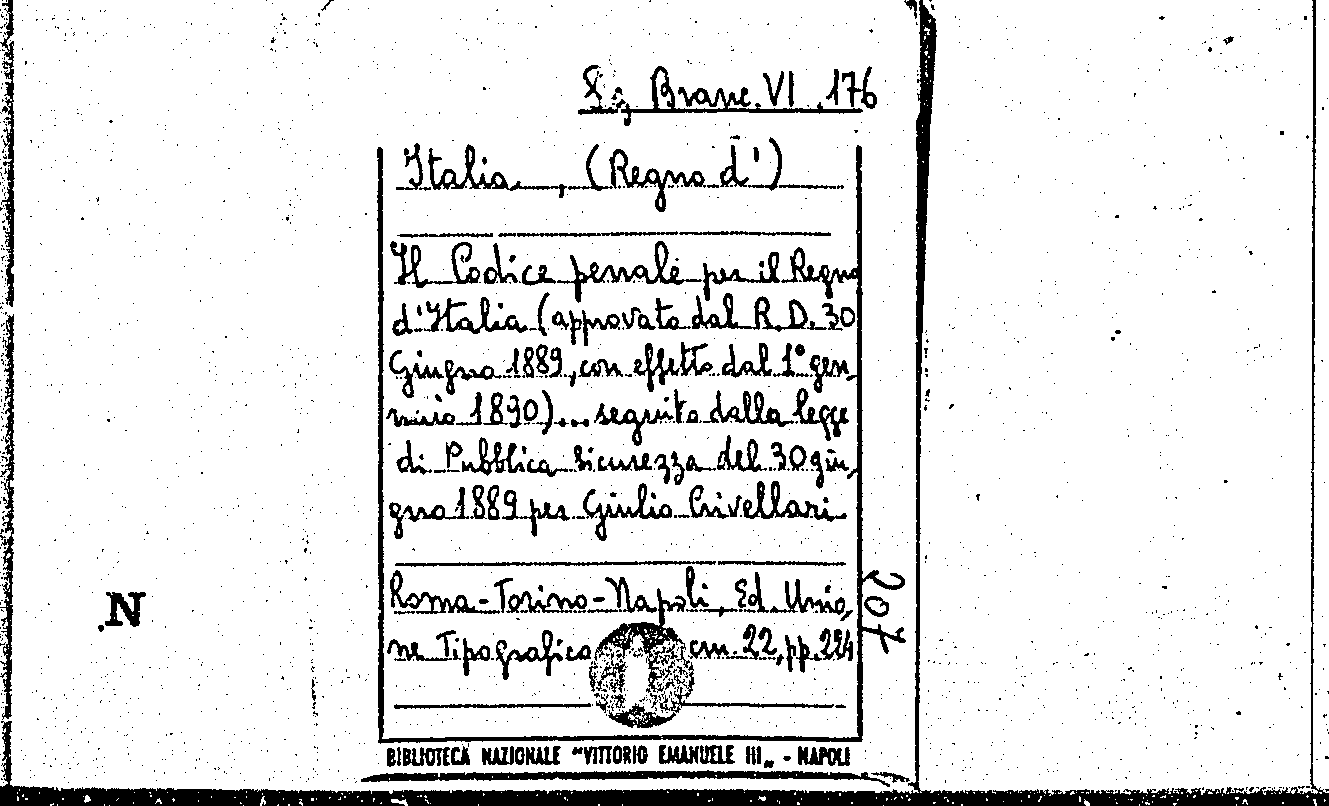 Branc. VI . 176
Italia , (Regno d')
Il Codice penale per il Regno
d'Italia (approvato dal R. D. 30
Giugno 1889, con effetto dal 1° gen,
naio 1890)... seguito dalla legge
di Pubblica Sicurezza del 30 giu,
gno 1889 per Giulio Crivellari
Roma-Torino-Napoli, Ed. Unio,
ne Tipografica cm. 22, pp. 224
207
.N
BIBLIOTECA NAZIONALE "VITTORIO EMANUELE III„ - NAPOLI